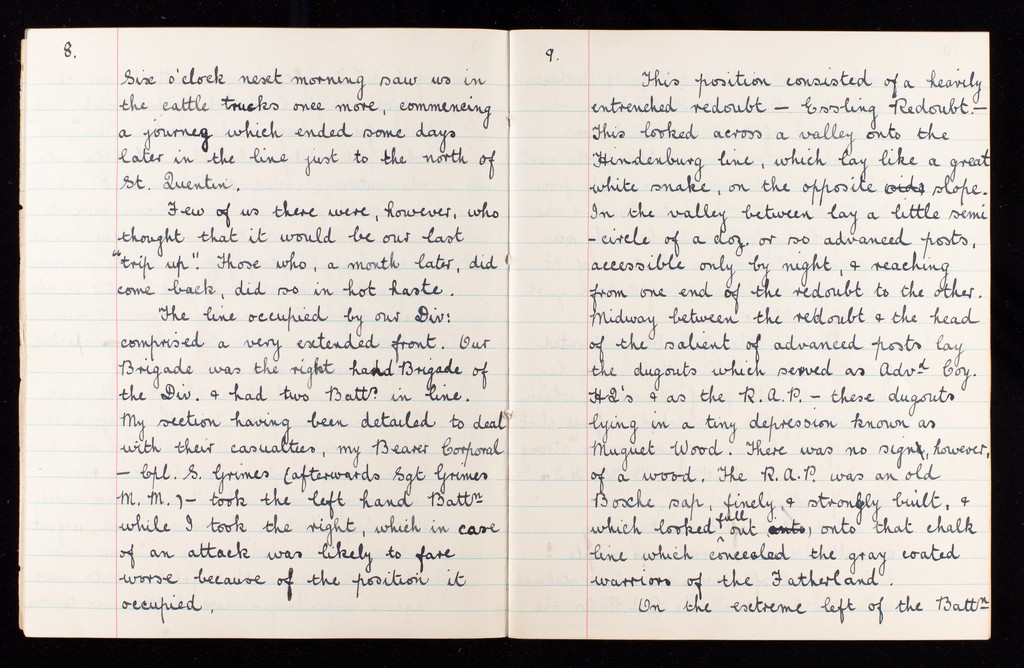 8.
Six o'clock next morning saw us in
the cattle trucks once more, commencing
a journey which ended some days
later in the line just to the north of
St. Quentin.
Few of us there were, however, who
thought that it would be our last
"trip up". Those who, a month later, did
come back, did so in hot haste.
The line occupied by our Div:
comprised a very extended front. Our
Brigade was the right hand Brigade of
the Div. & had two Battns in line.
My section having been detailed to deal
with their casualties, my Bearer Corporal
- Cpl. S. Grimes (afterwards Sgt Grimes
M. M.) - took the left hand Battn
while I took the right, which in case
of an attack was likely to fare
worse because of the position it
occupied.
9.
This position consisted of a heavily
entrenched redoubt - Essling Redoubt. -
This looked across a valley onto the
Hindenburg line, which lay like a great
white snake, on the opposite side slope.
In the valley between lay a little semi
-circle of a doz. or so advanced posts,
accessible only by night, & reaching
from one end of the redoubt to the other.
Midway between the redoubt & the head
of the salient of advanced posts lay
the dugouts which served as Advd Coy.
HQ's & as the R.A.P. - these dugouts
lying in a tiny depression known as
Muguet Wood. There was no sign, however,
of a wood. The R.A.P. was an old
Bosche sap, finely & strongly built, &
which looked full out onto, onto that chalk
line which concealed the gray coated
warriors of the Fatherland.
On the extreme left of the Battn